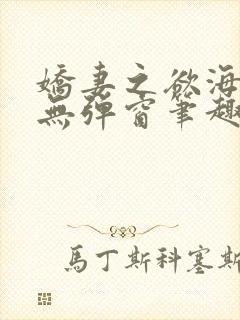 嬌妻之慾海
無彈窗筆趣
馬丁斯科塞斯